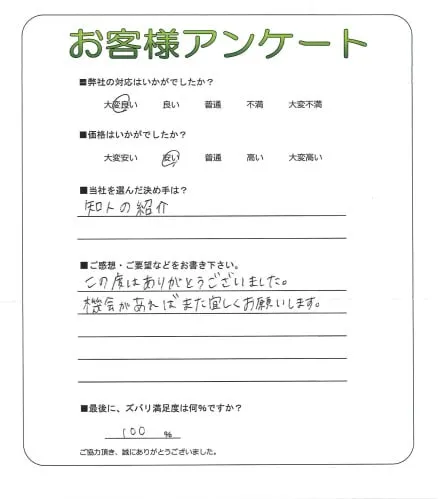 お客様アンケート
■弊社の対応はいかがでしたか？
大変良い 良い 普通 不満 大変不満
■価格はいかがでしたか？
大変安い 安い 普通 高い 大変高い
■当社を選んだ決め手は？
知人の紹介
■ご感想・ご要望などをお書き下さい。
この度はありがとうございました。
機会があればまた宜しくお願いします。
■最後に、ズバリ満足度は何％ですか？
100 %
ご協力頂き、誠にありがとうございました。